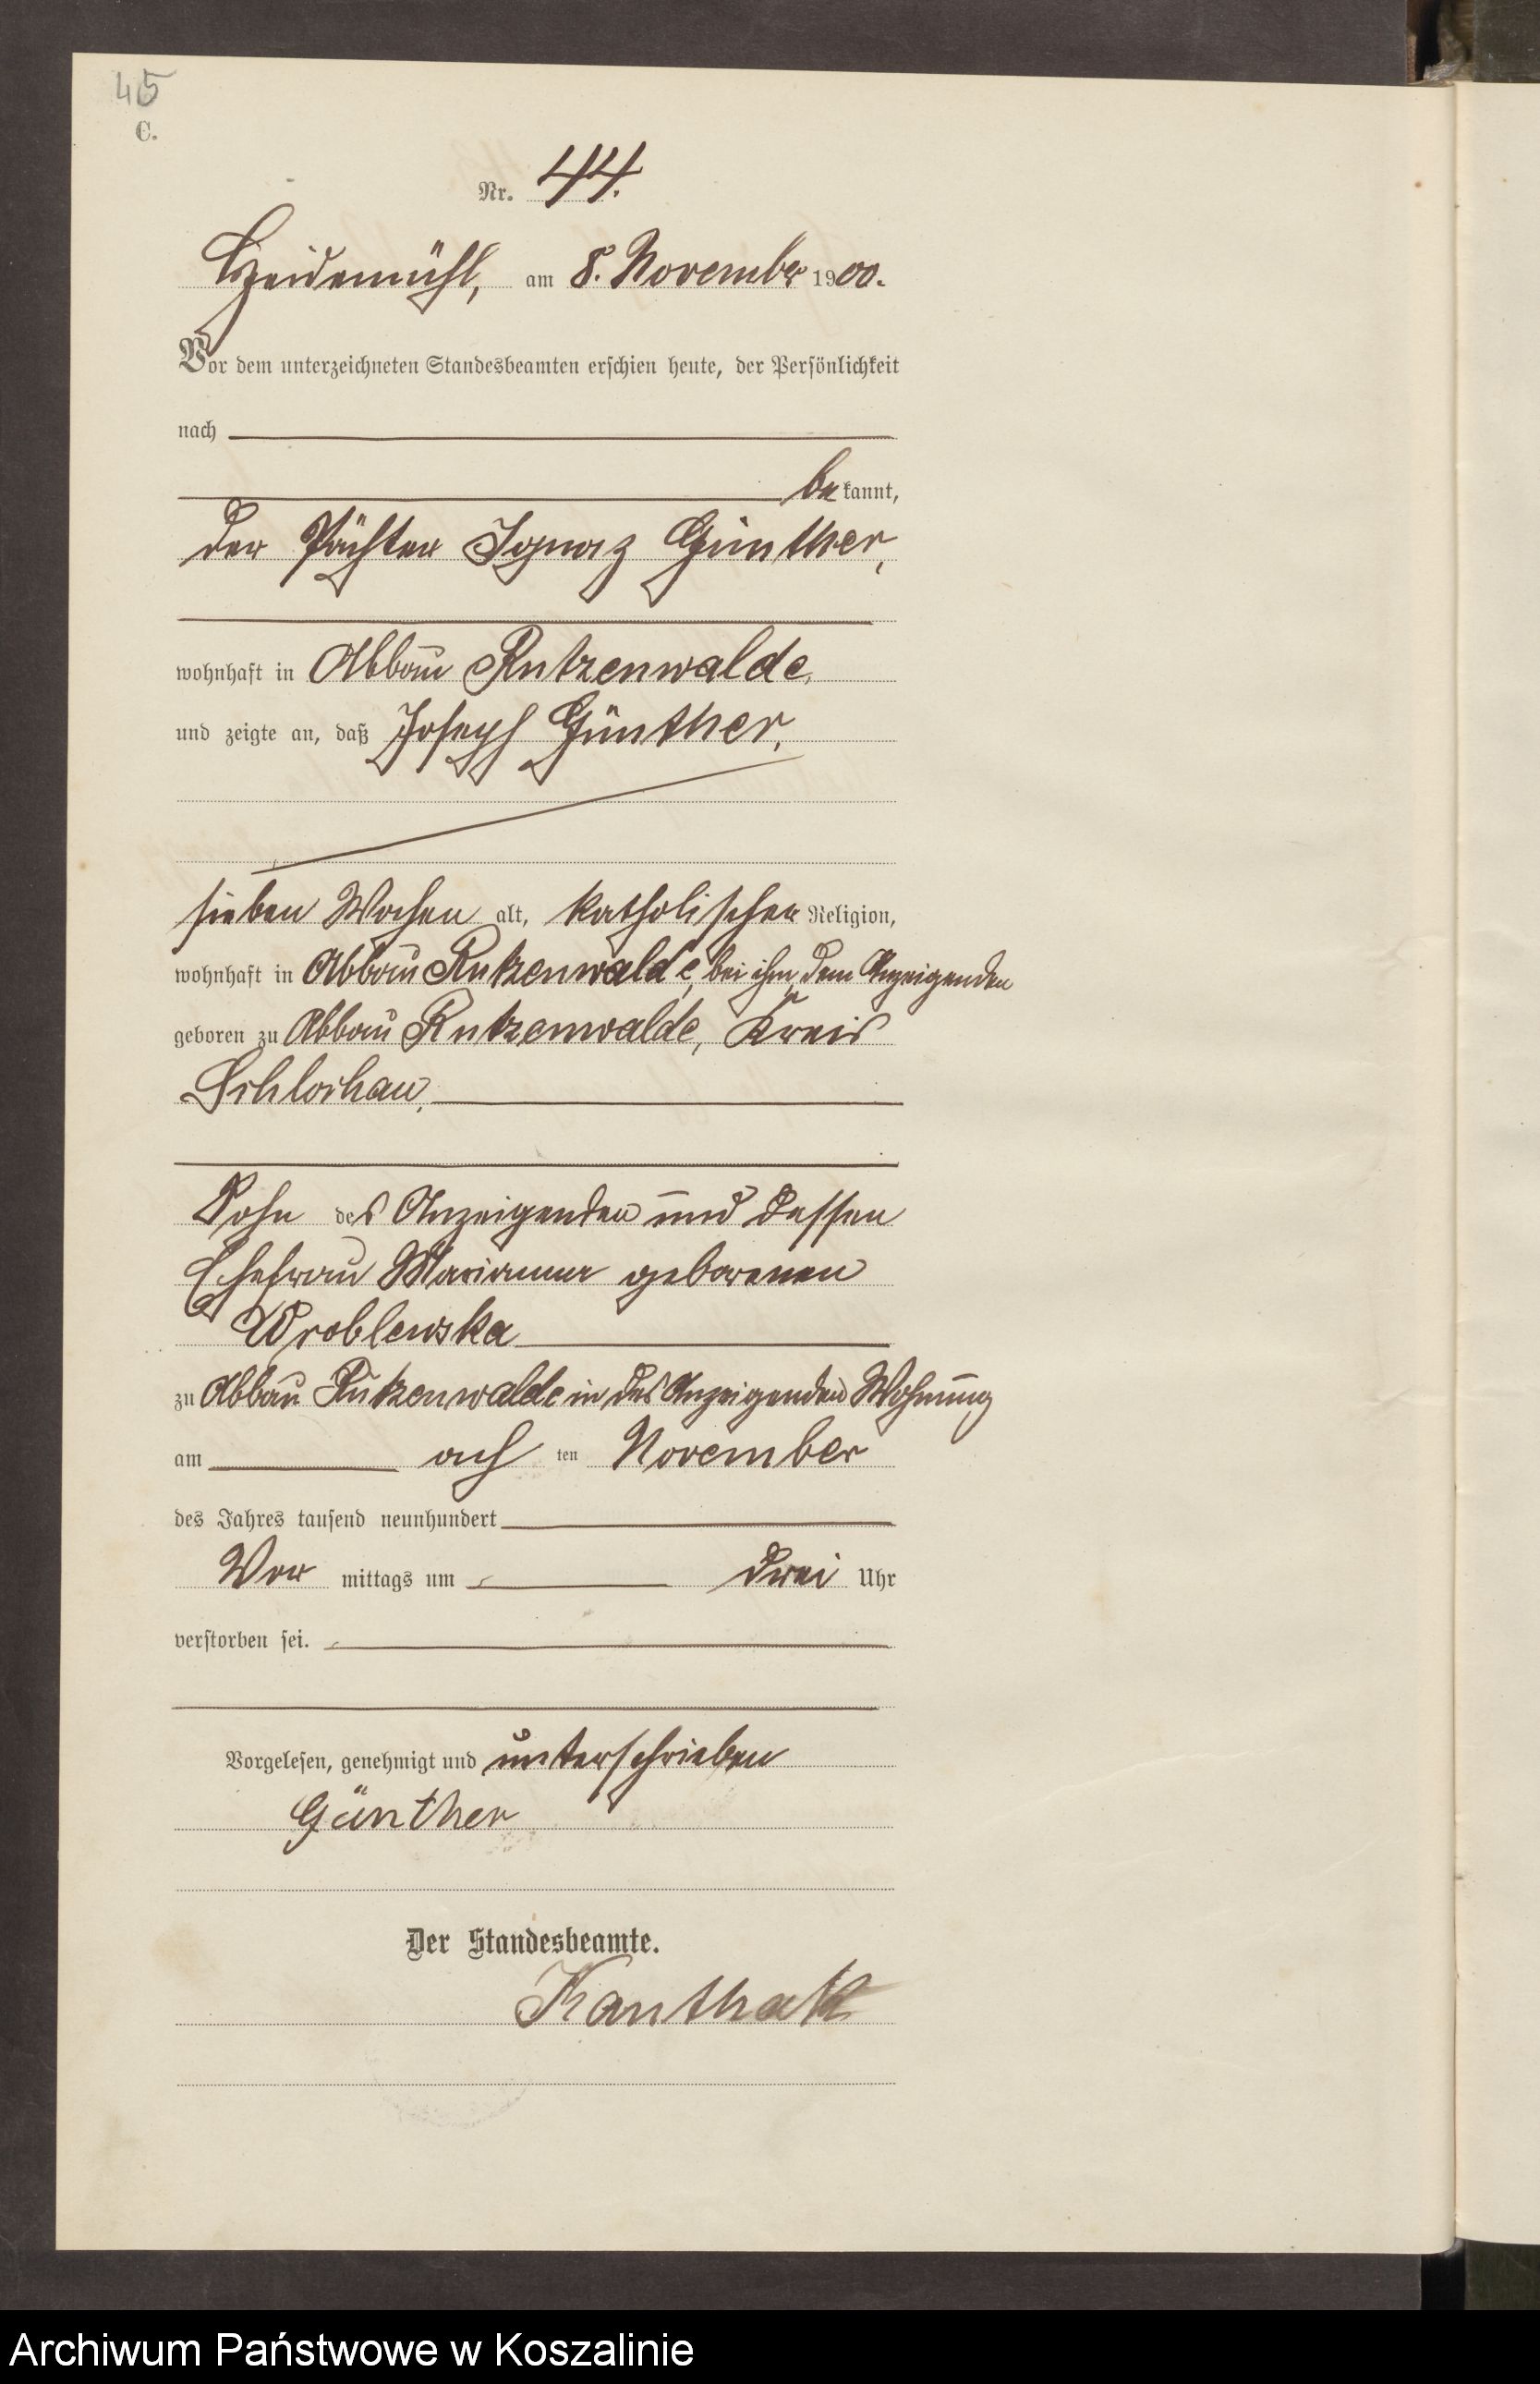 45
C.
Nr. 44.
Heidemühl, am 8. November 1900.
Vor dem unterzeichneten Standesbeamten erschien heute, der Persönlichkeit
nach
bekannt,
der Pächter Ignaz Günther,
wohnhaft in Abbau Rutzenwalde,
und zeigte an, daß Joseph Günther,
sieben Wochen alt, katholischer Religion,
wohnhaft in Abbau Rutzenwalde, bei ihm, dem Anzeigenden
geboren zu Abbau Rutzenwalde, Kreis
Schlochau,
Sohn des Anzeigenden und dessen
Ehefrau Marianna geborenen
Wroblewska
zu Abbau Rutzenwalde in des Anzeigenden Wohnung
am acht ten November
des Jahres tausend neunhundert
Vor mittags um drei Uhr
verstorben sei.
Vorgelesen, genehmigt und unterschrieben
Günther
Der Standesbeamte.
Kanthak
Archiwum Państwowe w Koszalinie